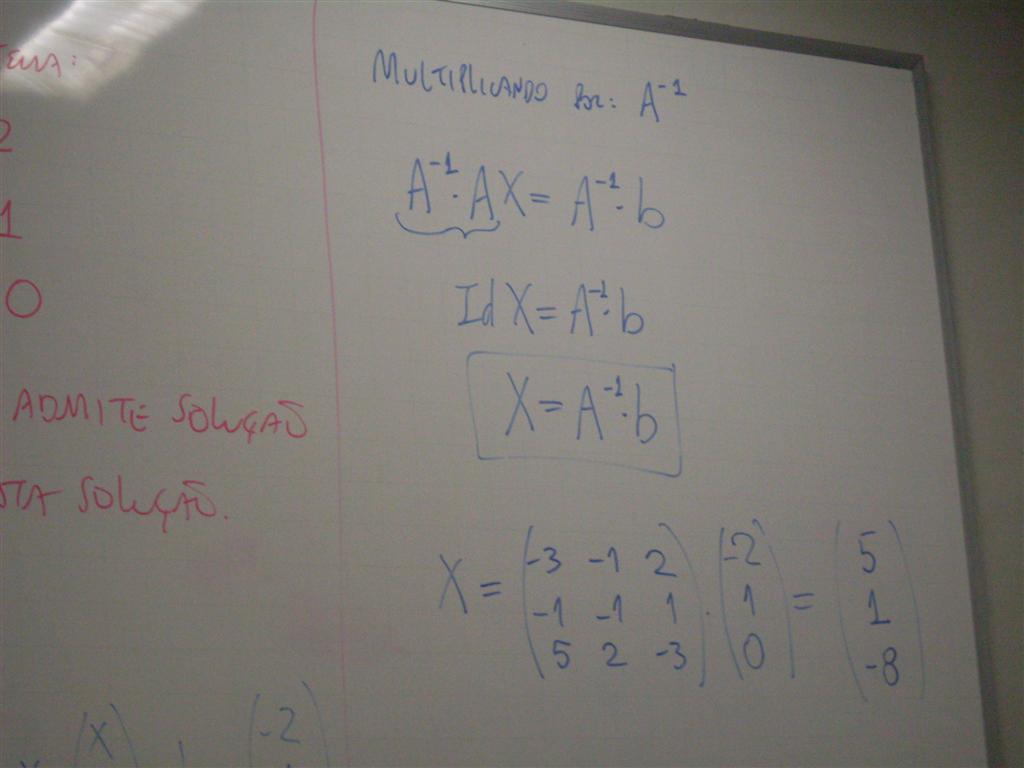 2
1
0
ADMITE SOLUÇÃO
SOLUÇÃO.
X
-2
MULTIPLICANDO POR: A⁻¹
A⁻¹·AX = A⁻¹·b
Id X = A⁻¹·b
X = A⁻¹·b
X = (-3 -1 2) · (-2) = (5)
(-1 -1 1) (1) (1)
(5 2 -3) (0) (-8)